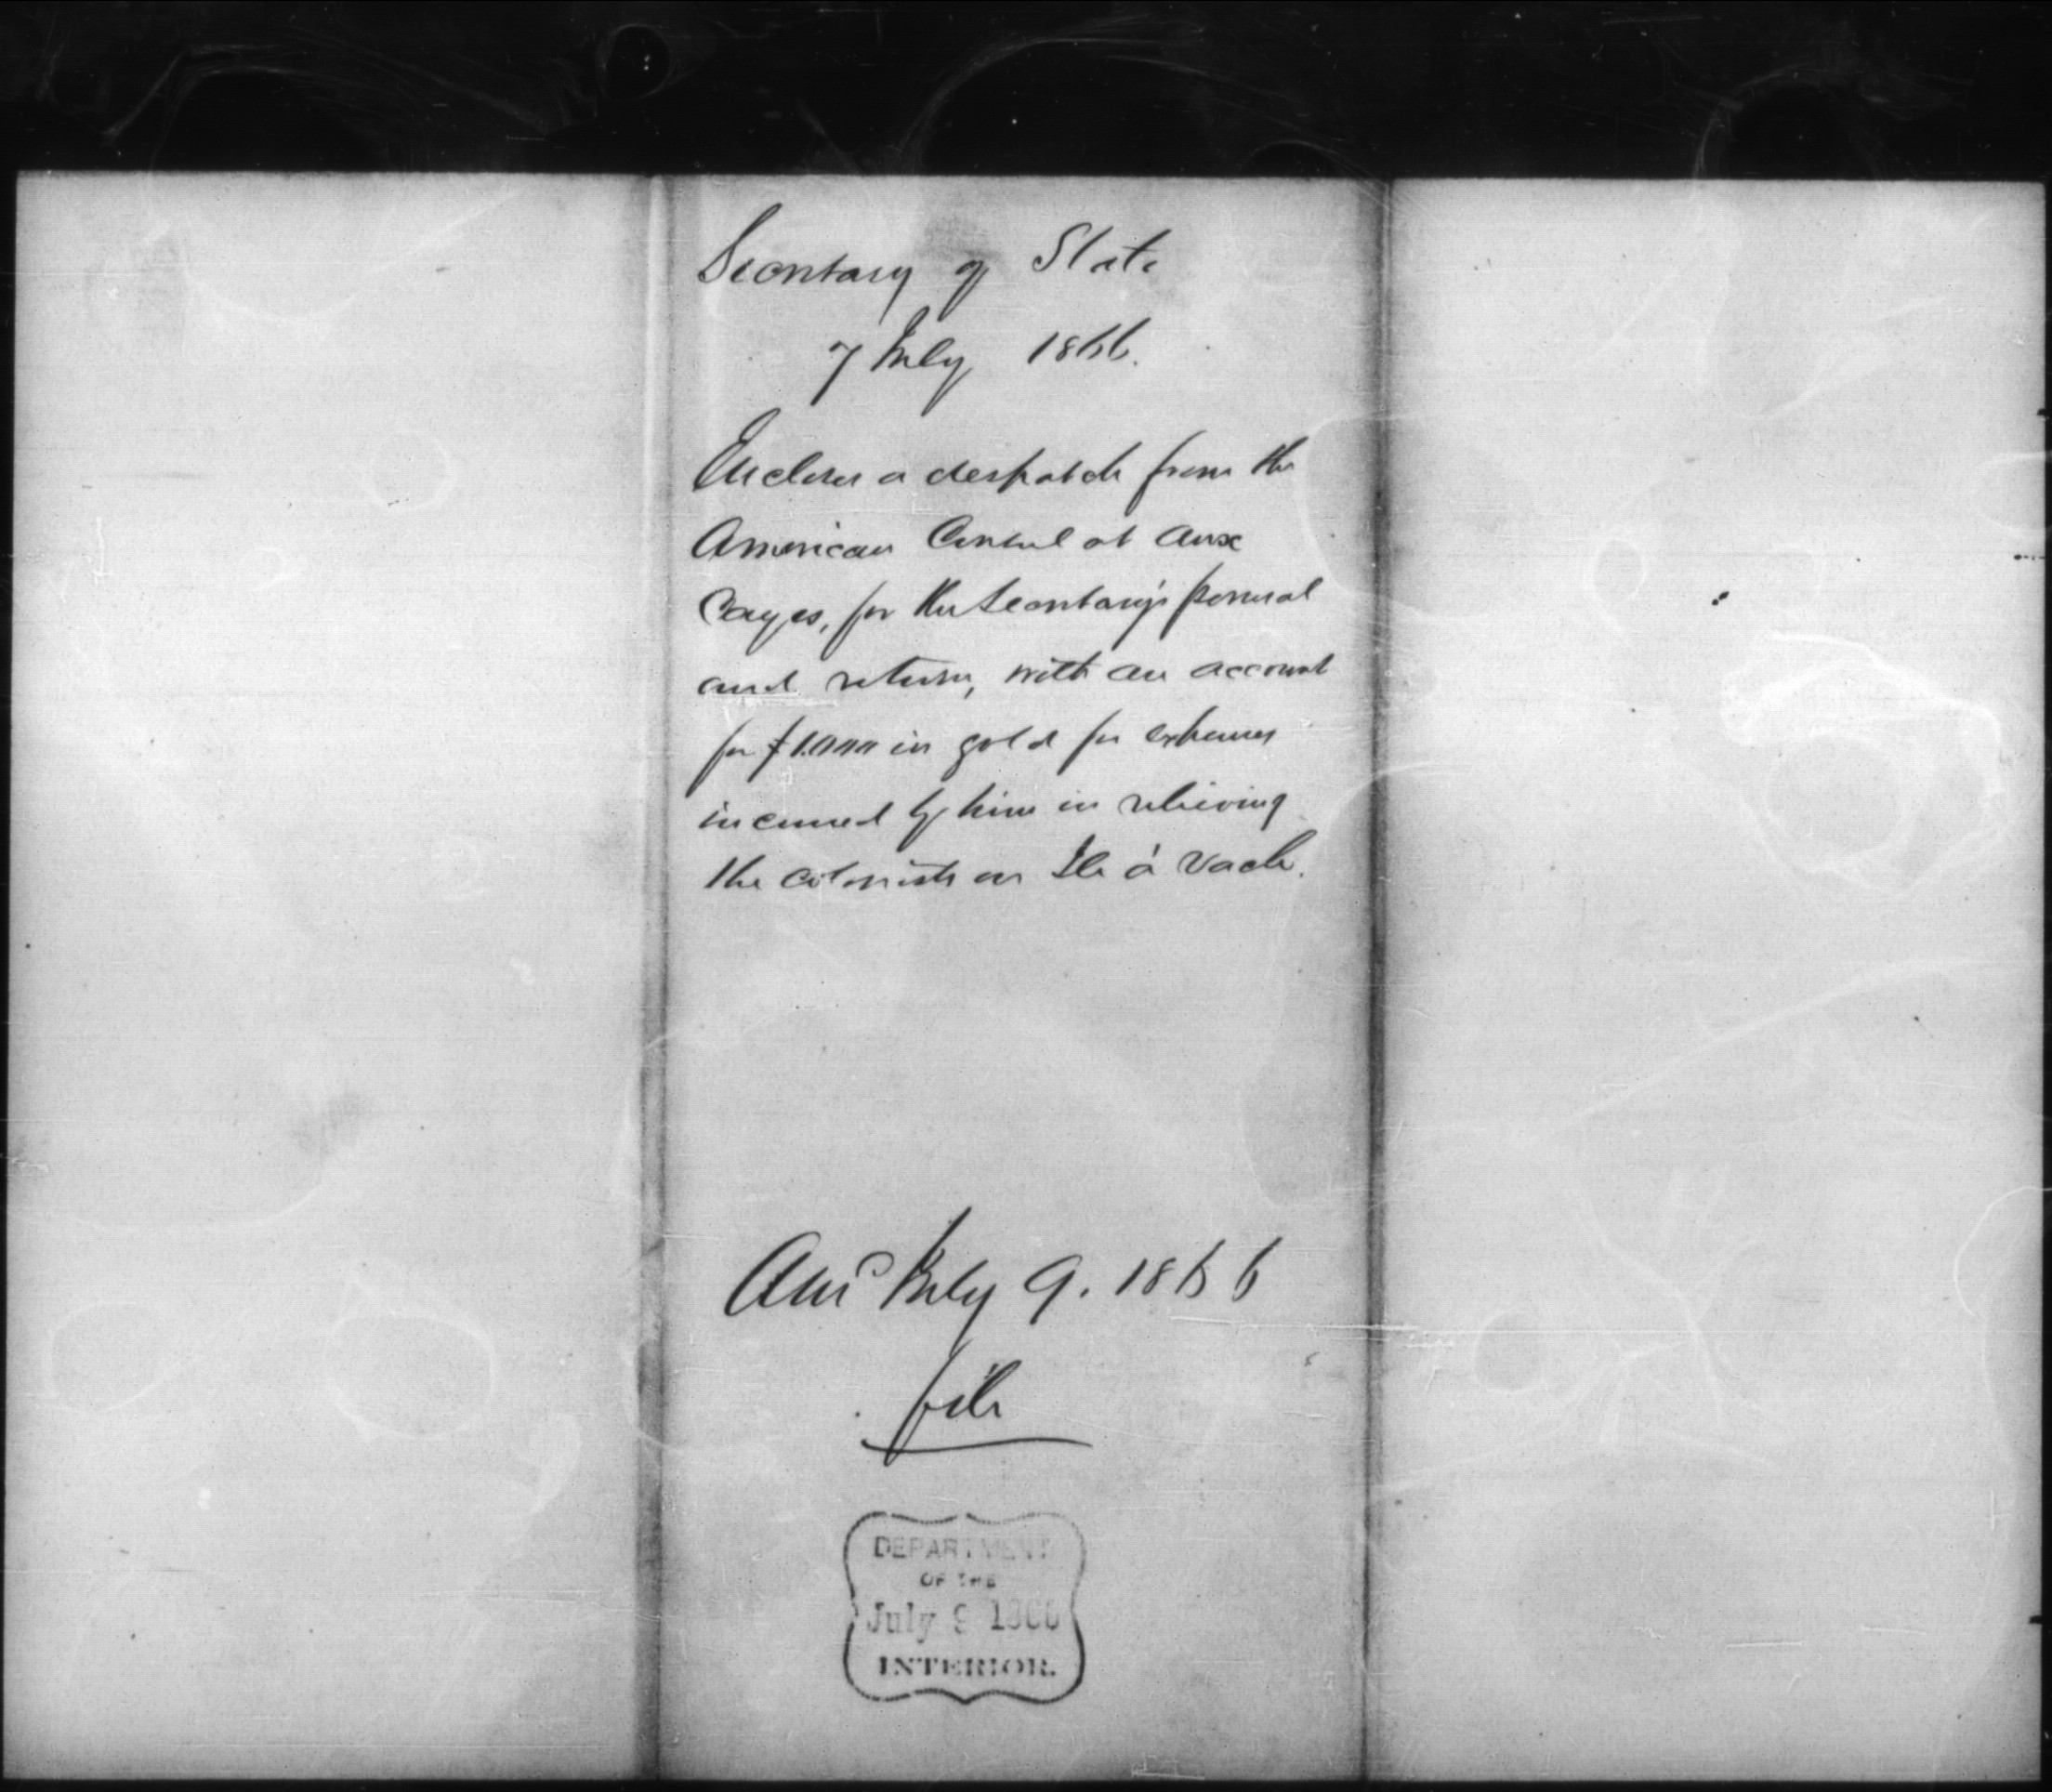 Secretary of State
7 July 1866.
Encloses a despatch from the
American Consul at Aux
Cayes, for the Secretary's perusal
and return, with an account
for $1.000 in gold for expenses
incurred by him in relieving
the colonists on Ile á Vache.
Ansd July 9. 1866
file
DEPARTMENT
OF THE
July 9 1866
INTERIOR.